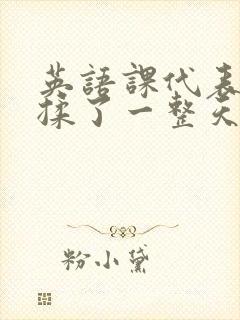 英語課代表
揉了一整天
粉小黛